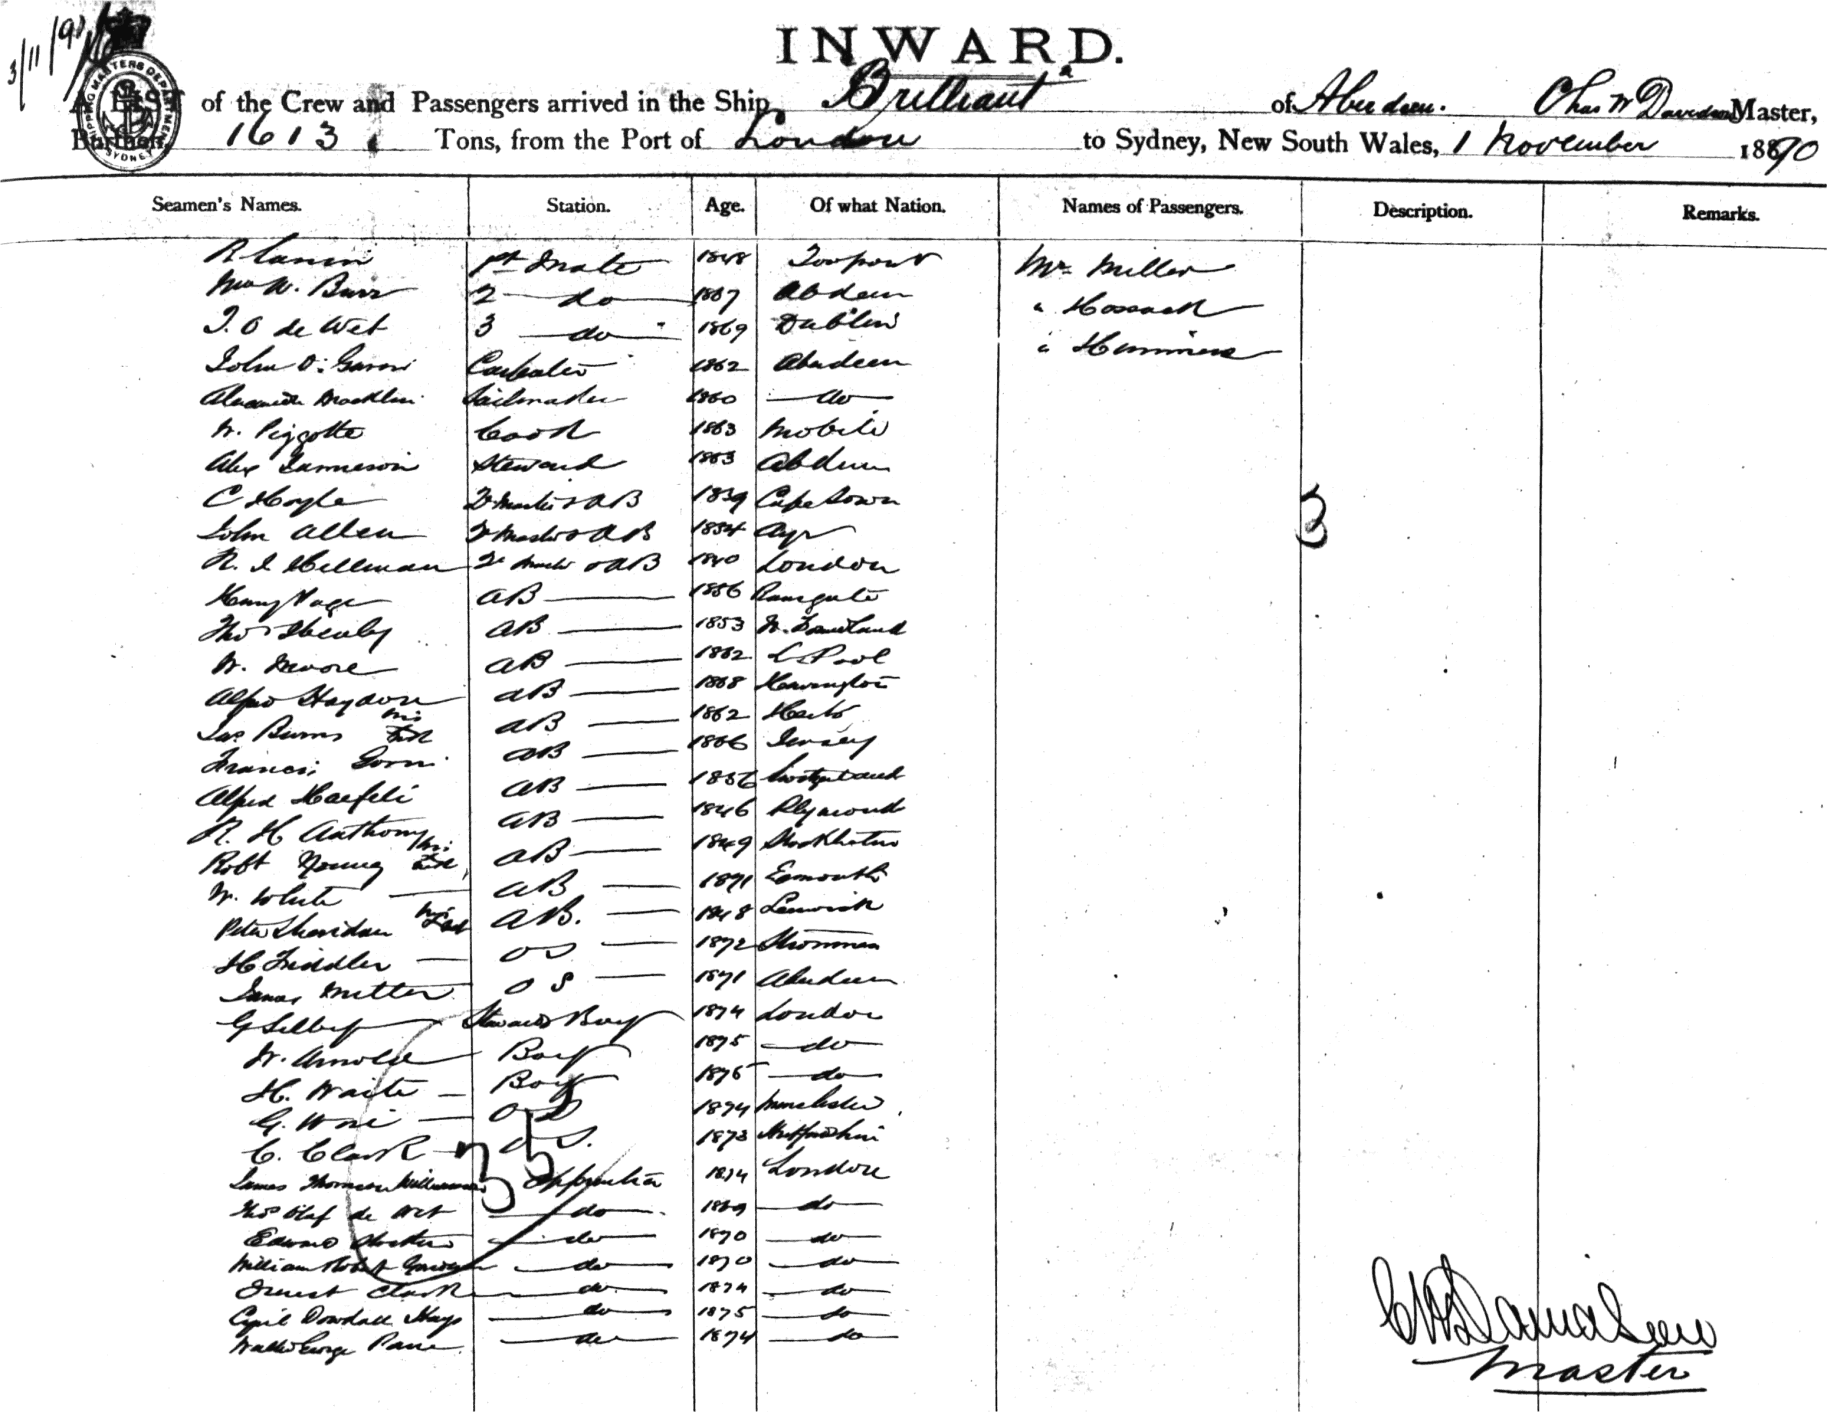 3/11/90
INWARD.
SHIPPING MASTERS DEPARTMENT SYDNEY
A LIST of the Crew and Passengers arrived in the Ship Brilliant of Aberdeen. Chas W Davidson Master,
Burthen, 1613 Tons, from the Port of London to Sydney, New South Wales, 1 November 1890
Seamen's Names. Station. Age. Of what Nation. Names of Passengers. Description. Remarks.
1st Mate 1848 Mr Miller
Wm W. Burr 2 do 1867 Abdeen " Hossack
T. O de Wet 3 do 1869 Dublin "
John Carpenter 1862 Aberdeen
Sailmaker 1860 do
W. Piggotte Cook 1863 Mobile
Alex Jamieson Steward 1863 Abdeen
C Hoyle AB 1839 Cape Town
John Allen AB 1854 Ayr
R. I Hillman AB 1840 London
Henry Page AB 1866 Ramgate
Thos Healey AB 1853
W. Moore AB 1862 L Pool
Alfred Haydon AB 1868 Kensington
Jas Burns his AB 1862 Herts
Francis AB 1866 Jersey
Alfred Haefeli AB 1866 Switzerland
R. H Anthony AB 1846 Plymouth
Robt Young his AB 1849 Stockholm
W. White AB 1871 Exmouth
Peter Sheridan his AB. 1848 Lerwick
H Fiddler OS 1872 Stromness
James OS 1871 Aberdeen
G Selby Stewards Boy 1874 London
W. Arnold Boy 1875 do
H. Waite Boy 1875 do
G. OS 1874 Manchester
C. Clark OS. 1873
35
3
James Thomson Williamson Apprentice 1874 London
Thos Olaf de Wet do 1869 do
Edward do 1870 do
William Robert do 1870 do
Ernest Clark do 1874 do
Cyril Dowdall Hays do 1875 do
Walter George do 1874 do
C W Davidson
Master